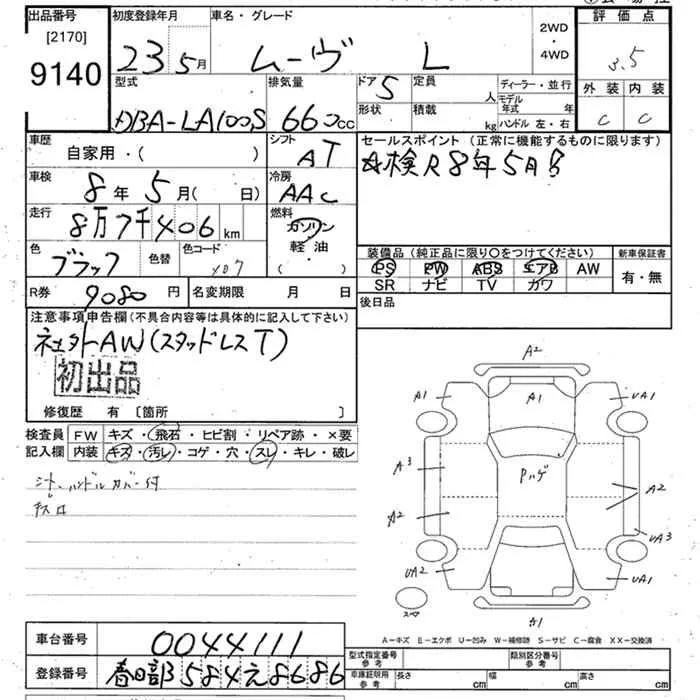 出品番号
[2170]
9140
初度登録年月
23 5月
車名・グレード
ムーヴ L
2WD
・
4WD
評価点
3.5
外装 内装
C C
型式
DBA-LA100S
排気量
660cc
ドア 5
定員 人
形状
積載 kg
ディーラー・並行
モデル年式 年
ハンドル 左・右
車歴
自家用・( )
シフト
AT
セールスポイント (正常に機能するものに限ります)
車検R8年5月
車検
8年5月( 日)
冷房
AAC
走行
8万7千406km
燃料
ガソリン
軽油
( )
色
ブラック
色替
色コード
X07
装備品 (純正品に限り○をつけてください)
PS PW ABS エアB AW
SR ナビ TV カワ
新車保証書
有・無
R券
9080円
名変期限 月 日
後日品
注意事項申告欄(不具合内容等は具体的に記入して下さい)
社外AW(スタッドレスT)
初出品
修復歴 有 [箇所 ]
検査員記入欄
FW キズ・飛石・ヒビ割・リペア跡・×要
内装 キズ・汚レ・コゲ・穴・スレ・キレ・破レ
シート、ハンドルカバー付
A2
A1 A1 UA1
A3 Pハゲ A2
A2 UA3
UA2 UA1
スペア A1
A-キズ E-エクボ U-凹み W-補修跡 S-サビ C-腐食 XX-交換済
車台番号
0044111
登録番号
春日部584え8686
型式指定番号 参考
類別区分番号 参考
車庫証明用 参考
長さ cm 幅 cm 高さ cm